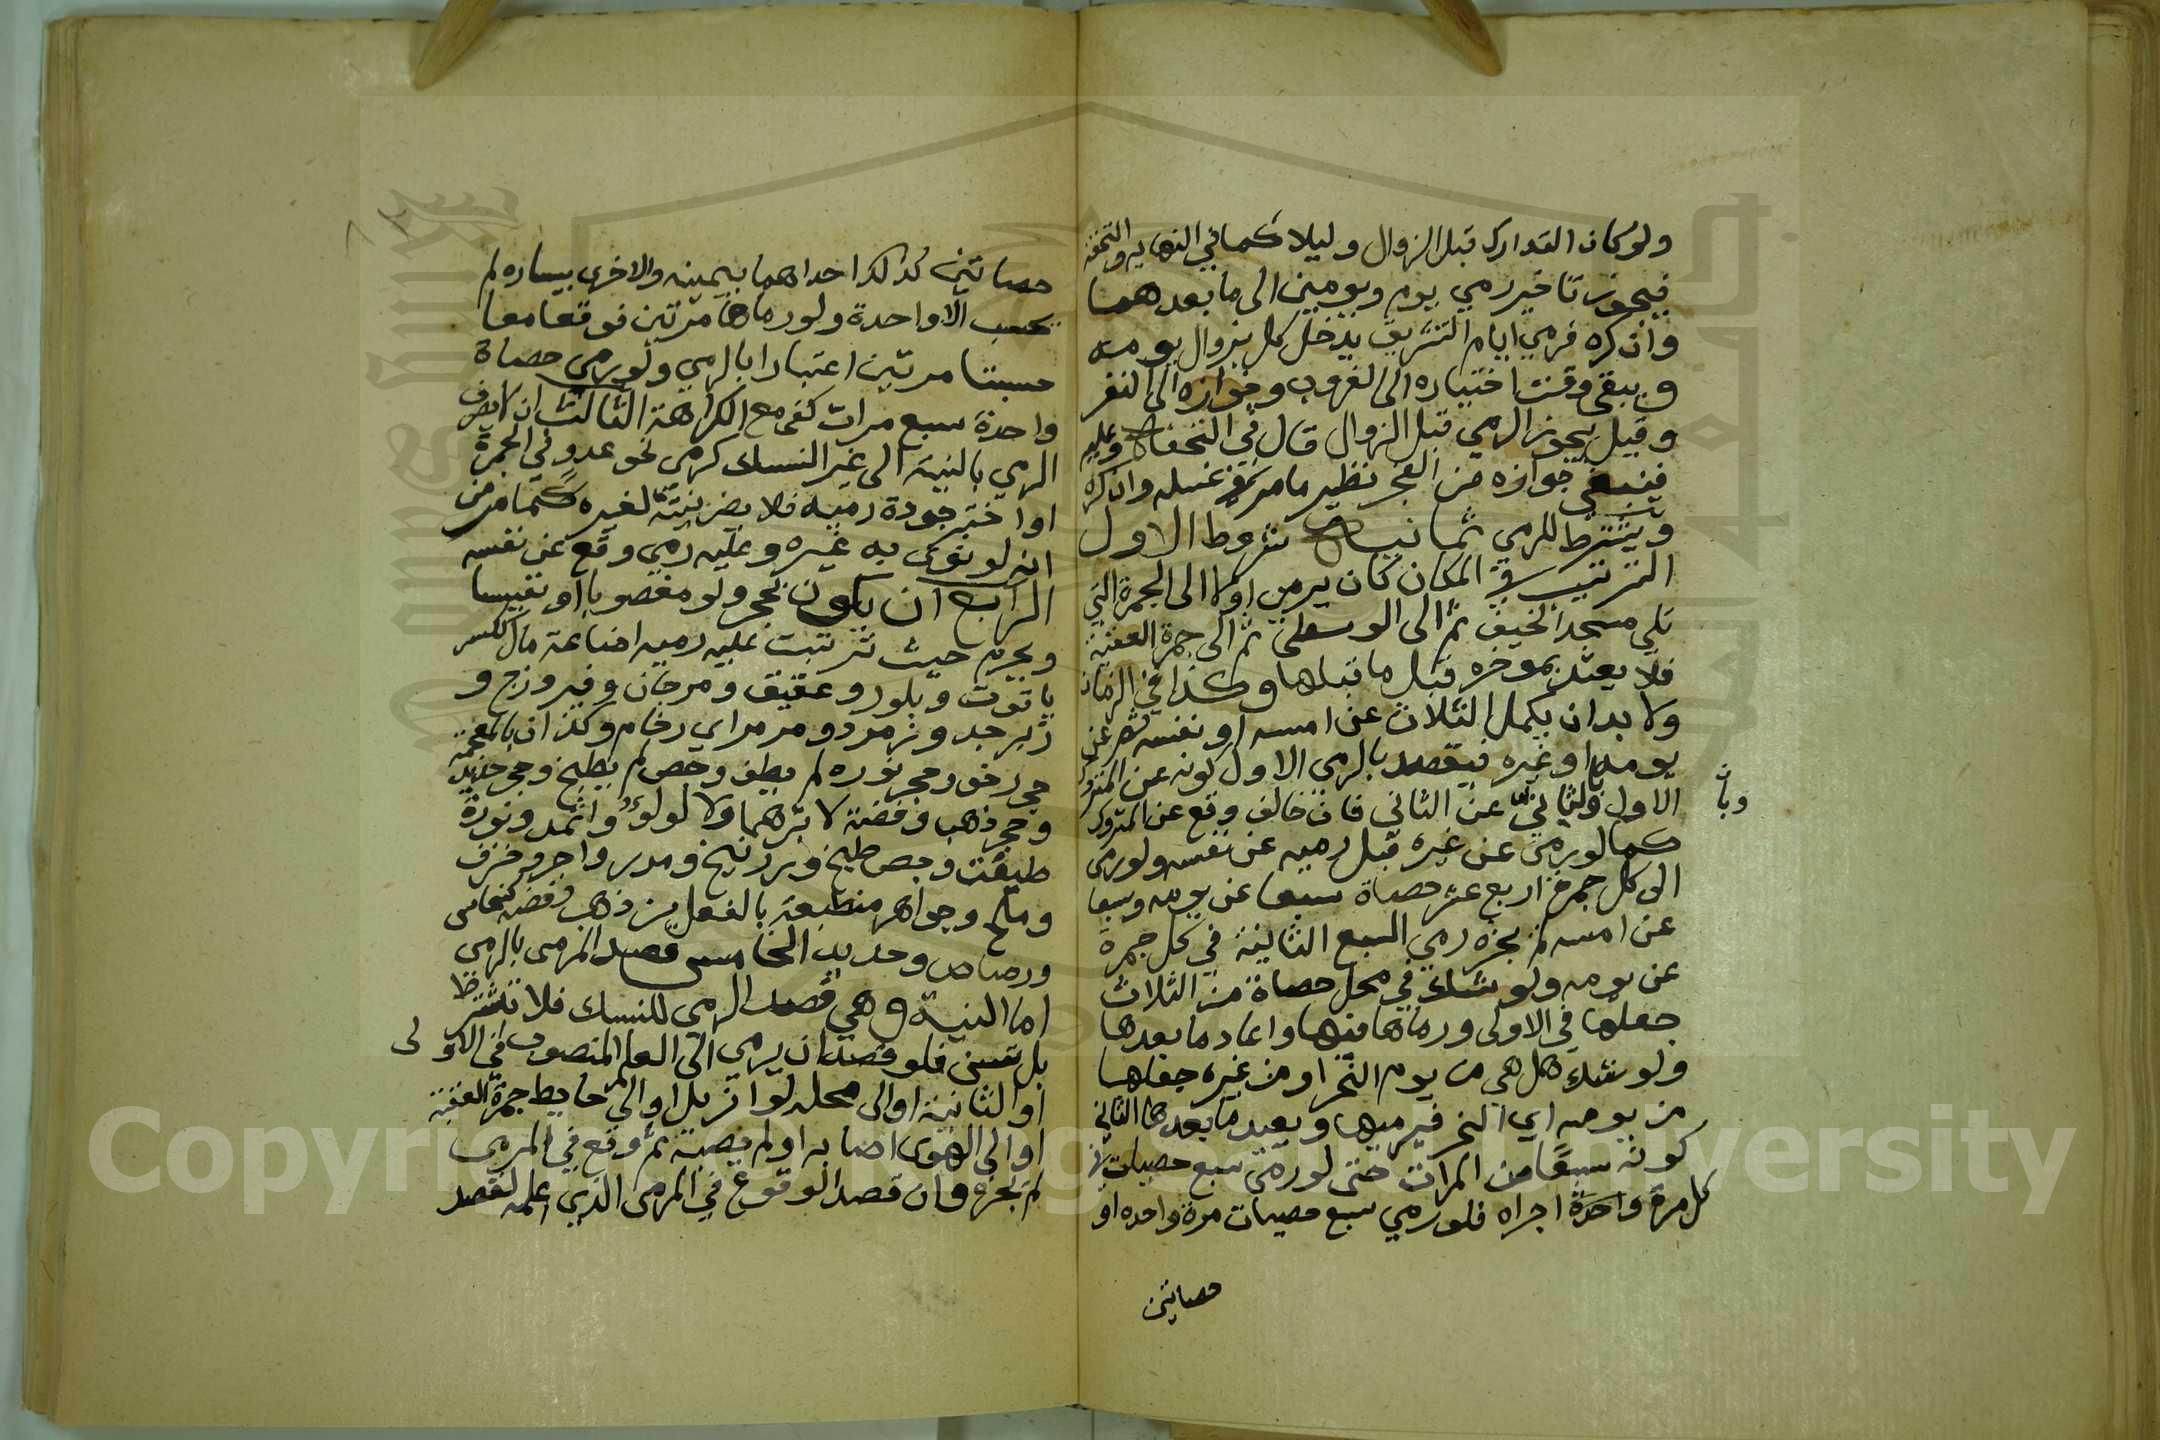 ولو كان التدارك قبل الزوال وليلا كما في النهاية والتحفة
فيجوز تاخير رمي يوم ويومين الى ما بعدهما
وان كره فرمي ايام التشريق يدخل كل بزوال يومه
ويبقى وقت اختياره الى الغروب وجوازه الى النفر
وقيل يجوز الرمي قبل الزوال قال في التحفة وعليه
فينبغي جوازه من الفجر نظير ما مر في غسله وان كره
ويشترط للرمي ثمانية شروط الاول
الترتيب في المكان كان يرمي اولا الى الجمرة التي
تلي مسجد الخيف ثم الى الوسطى ثم الى جمرة العقبة
فلا يعتد بموخره قبل ما قبلها وكذا في الزمان
ولا بد ان يكمل الثلاث عن امسه او نفسه ثم عن
يومه او غيره فيقصد بالرمي الاول كونه عن المتروك
الاول وبالثاني عن الثاني فان خالف وقع عن المتروك
وبان
كما لو رمى عن غيره قبل رميه عن نفسه ولو رمى
الى كل جمرة اربع عشر حصاة سبعا عن يومه وسبعا
عن امسه لم يجزه رمي السبع الثانية في كل جمرة
عن يومه ولو شك في محل حصاة من الثلاث
جعلها في الاولى ورماها منها واعاد ما بعدها
ولو شك هل هي من يوم النحر او من غيره جعلها
من يومه اي النحر فيرميها ويعيد ما بعدها الثاني
كونه سبعا من المرات حتى لو رمى سبع حصيات
كل مرة واحدة اجراه فلو رمي سبع حصيات مرة واحده او
حصاتين
حصاتين كذلك احداهما بيمينه والاخرى بيساره لم
يحسب الا واحدة ولو رماها مرتين فوقعا معا
حسبتا مرتين اعتبارا بالرمي ولو رمى حصاة
واحدة سبع مرات كفى مع الكراهة الثالث ان لا يصرف
الرمي بالنية الى غير النسك كرمي نحو عدو في الجمرة
او اختبر جودة رميه فلا يضر نيته لغيره كما مر من
انه لو نوى به غيره وعليه رمي وقع عن نفسه
الرابع ان يكون بحجر ولو مغصوبا او نفيسا
ويحرم حيث ترتبت عليه رميه اضاعة مال ككسر
ياقوت وبلور وعقيق ومرجان وفيروزج و
زبرجد وزمرد ومرمر اي رخام وكذان بالمعجمة
حجر رخو وحجر نوره لم يطبخ وجص لم يطبخ وحجر حديد
وحجر ذهب وفضة لا تبرهما ولا لولوء واثمد ونورة
طبخت وجص طبخ وزرنيخ ومدر واجر وخزف
وملح وجواهر منطبعة بالفعل من ذهب وفضة كنحاس
ورصاص وحديد الخامس قصد المرمى بالرمي
اما النية وهي قصد الرمي للنسك فلا تشترط
بل تسن فلو قصد ان يرمي الى العلم المنصوب في الاولى
او الثانية او الى محله لو ازيل او الى حايط جمرة العقبة
او الى الهوى اصابه او لم يصبه ثم وقع في المرمى
لم يجزه وان قصد الوقوع في المرمى الذي اعلمه لقصد
Copyright © King Saud University